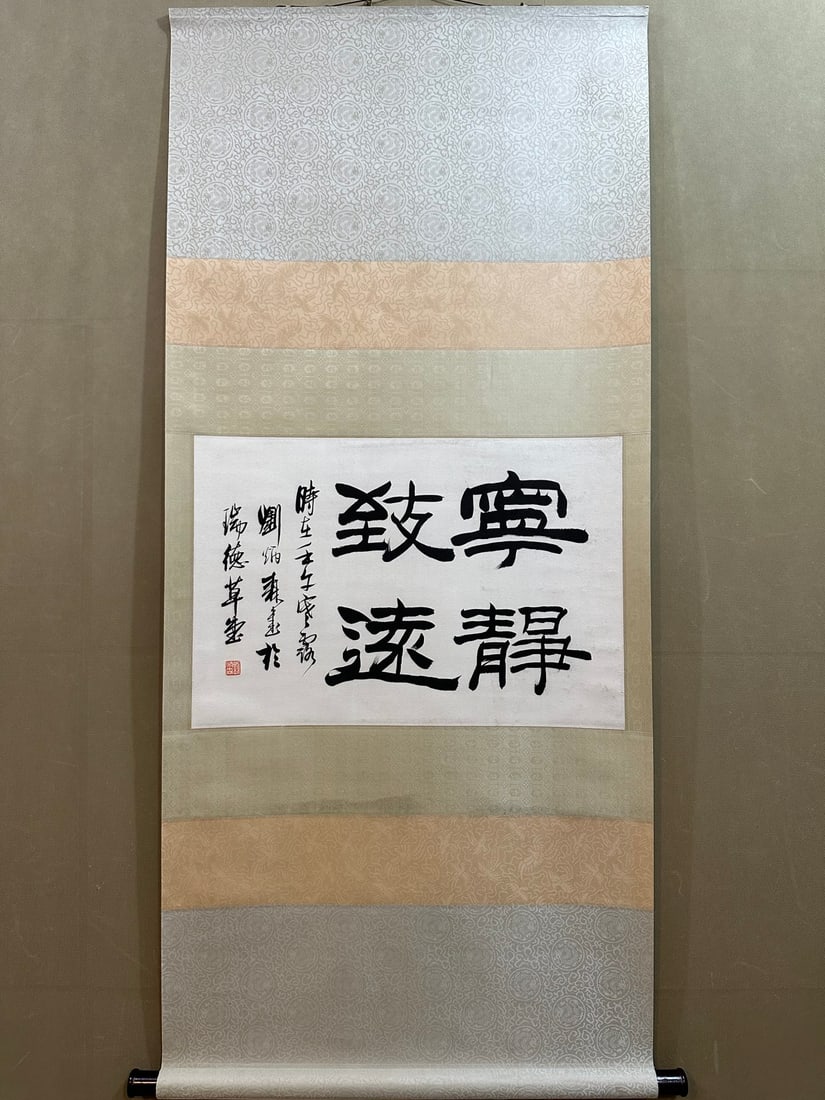 寧靜
致遠
時在壬午寒露
劉炳森書於
瑞德草堂